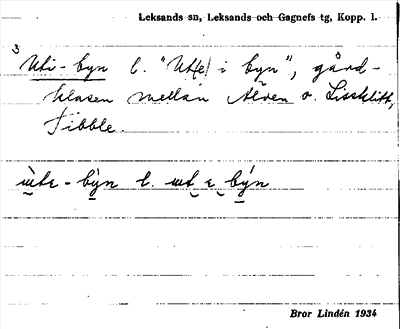 Leksands sn, Leksands och Gagnefs tg, Kopp. l.
3
Uti-byn l. "Ut(e) i byn", gård-
klasen mellan Älven o. Lissklitt,
Tibble.
ùtε-by̌n l. ut ε býn
Bror Lindén 1934